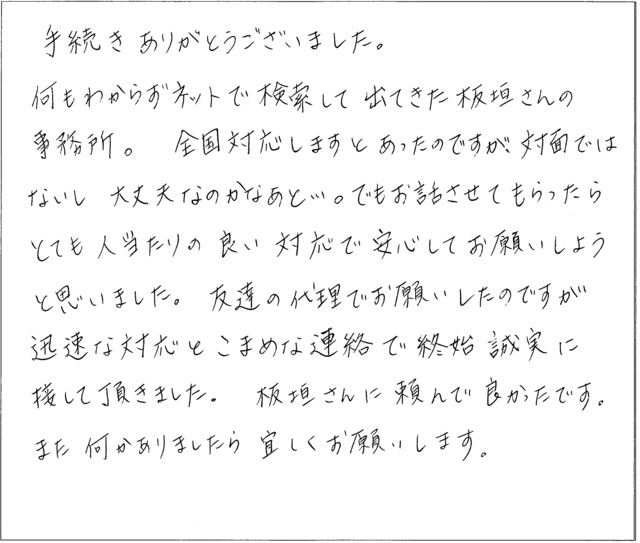 手続きありがとうございました。
何もわからずネットで検索して出てきた板垣さんの
事務所。 全国対応しますとあったのですが、対面では
ないし 大丈夫なのかなあと…。でもお話させてもらったら
とても人当たりの良い対応で安心してお願いしよう
と思いました。友達の代理でお願いしたのですが
迅速な対応とこまめな連絡で終始誠実に
接して頂きました。 板垣さんに頼んで良かったです。
また何かありましたら宜しくお願いします。